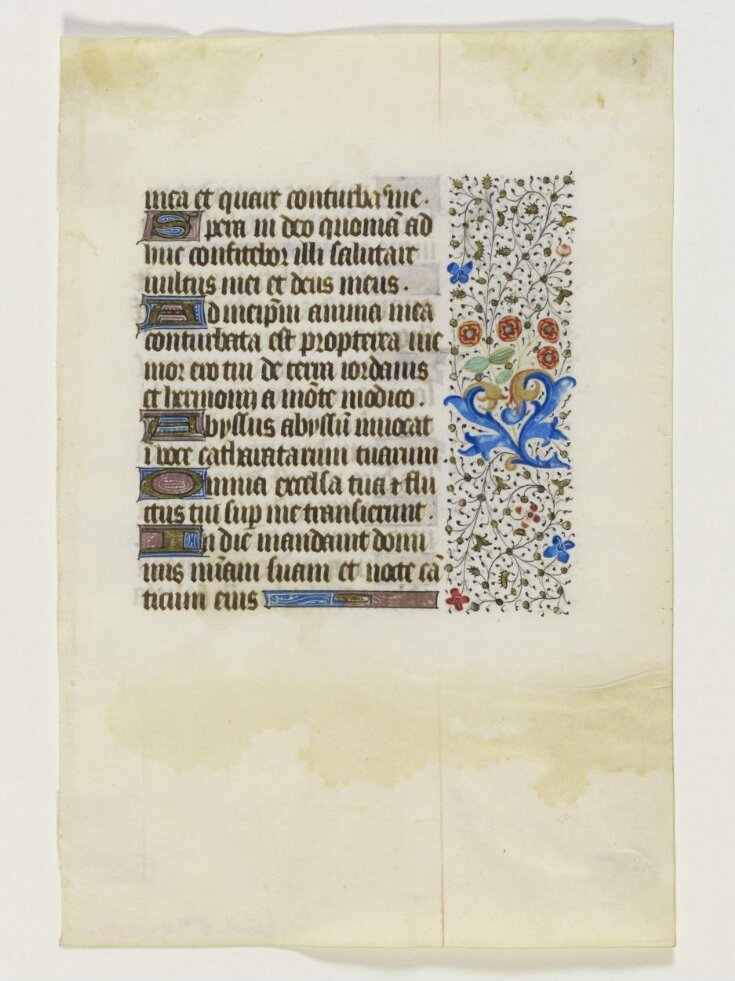 mea et quare conturbas me.
Spera in deo quoniã ad
huc confitebor illi salutare
vultus mei et deus meus.
Ad meip̃m anima mea
conturbata est propterea me
mor ero tui de terra iordanis
et hermonij a mõte modico.
Abyssus abyssũ invocat
i voce catharatarum tuarum.
Omnia excelsa tua ⁊ flu
ctus tui sup me transierunt.
In die mandavit domi
nus mĩam suam et nocte cã
ticum eius